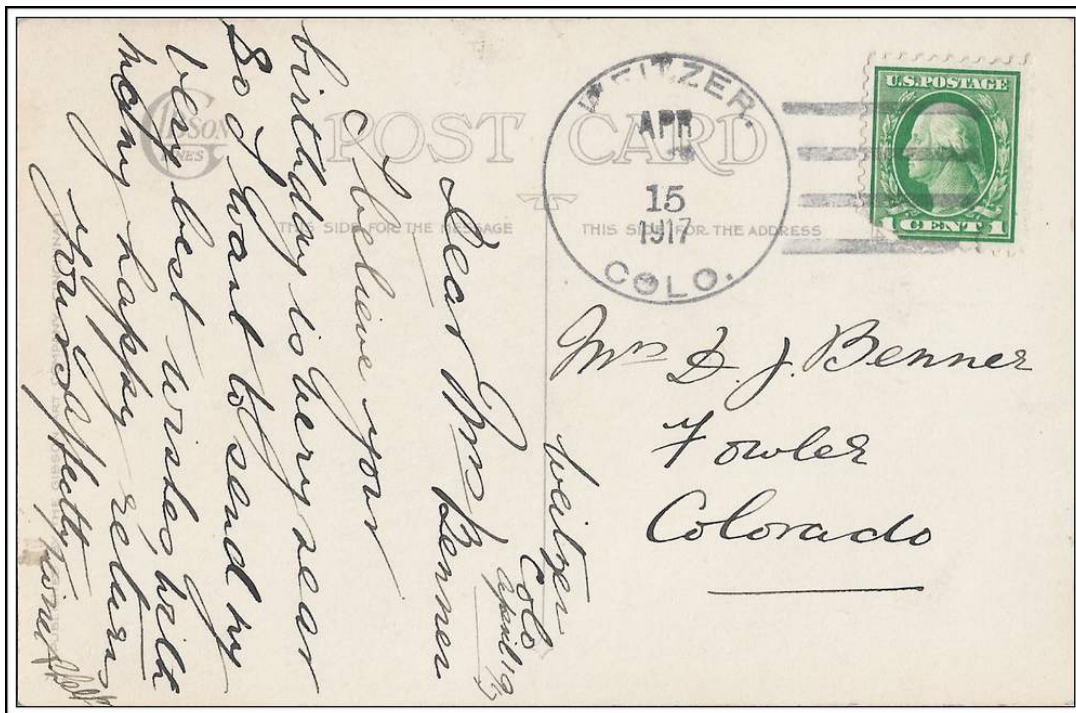 GIBSON
LINES
POST CARD
THIS SIDE FOR THE MESSAGE
THIS SIDE FOR THE ADDRESS
WEITZER.
APR
15
1917
COLO.
U.S. POSTAGE
1 CENT 1
Mrs D. J. Benner
Fowler
Colorado
Weitzer
Colo
April
Dear Mrs Benner
I believe your
birthday is very near
So I want to send my
very best wishes with
many happy returns
Yours
THE GIBSON ART COMPANY, CINCINNATI